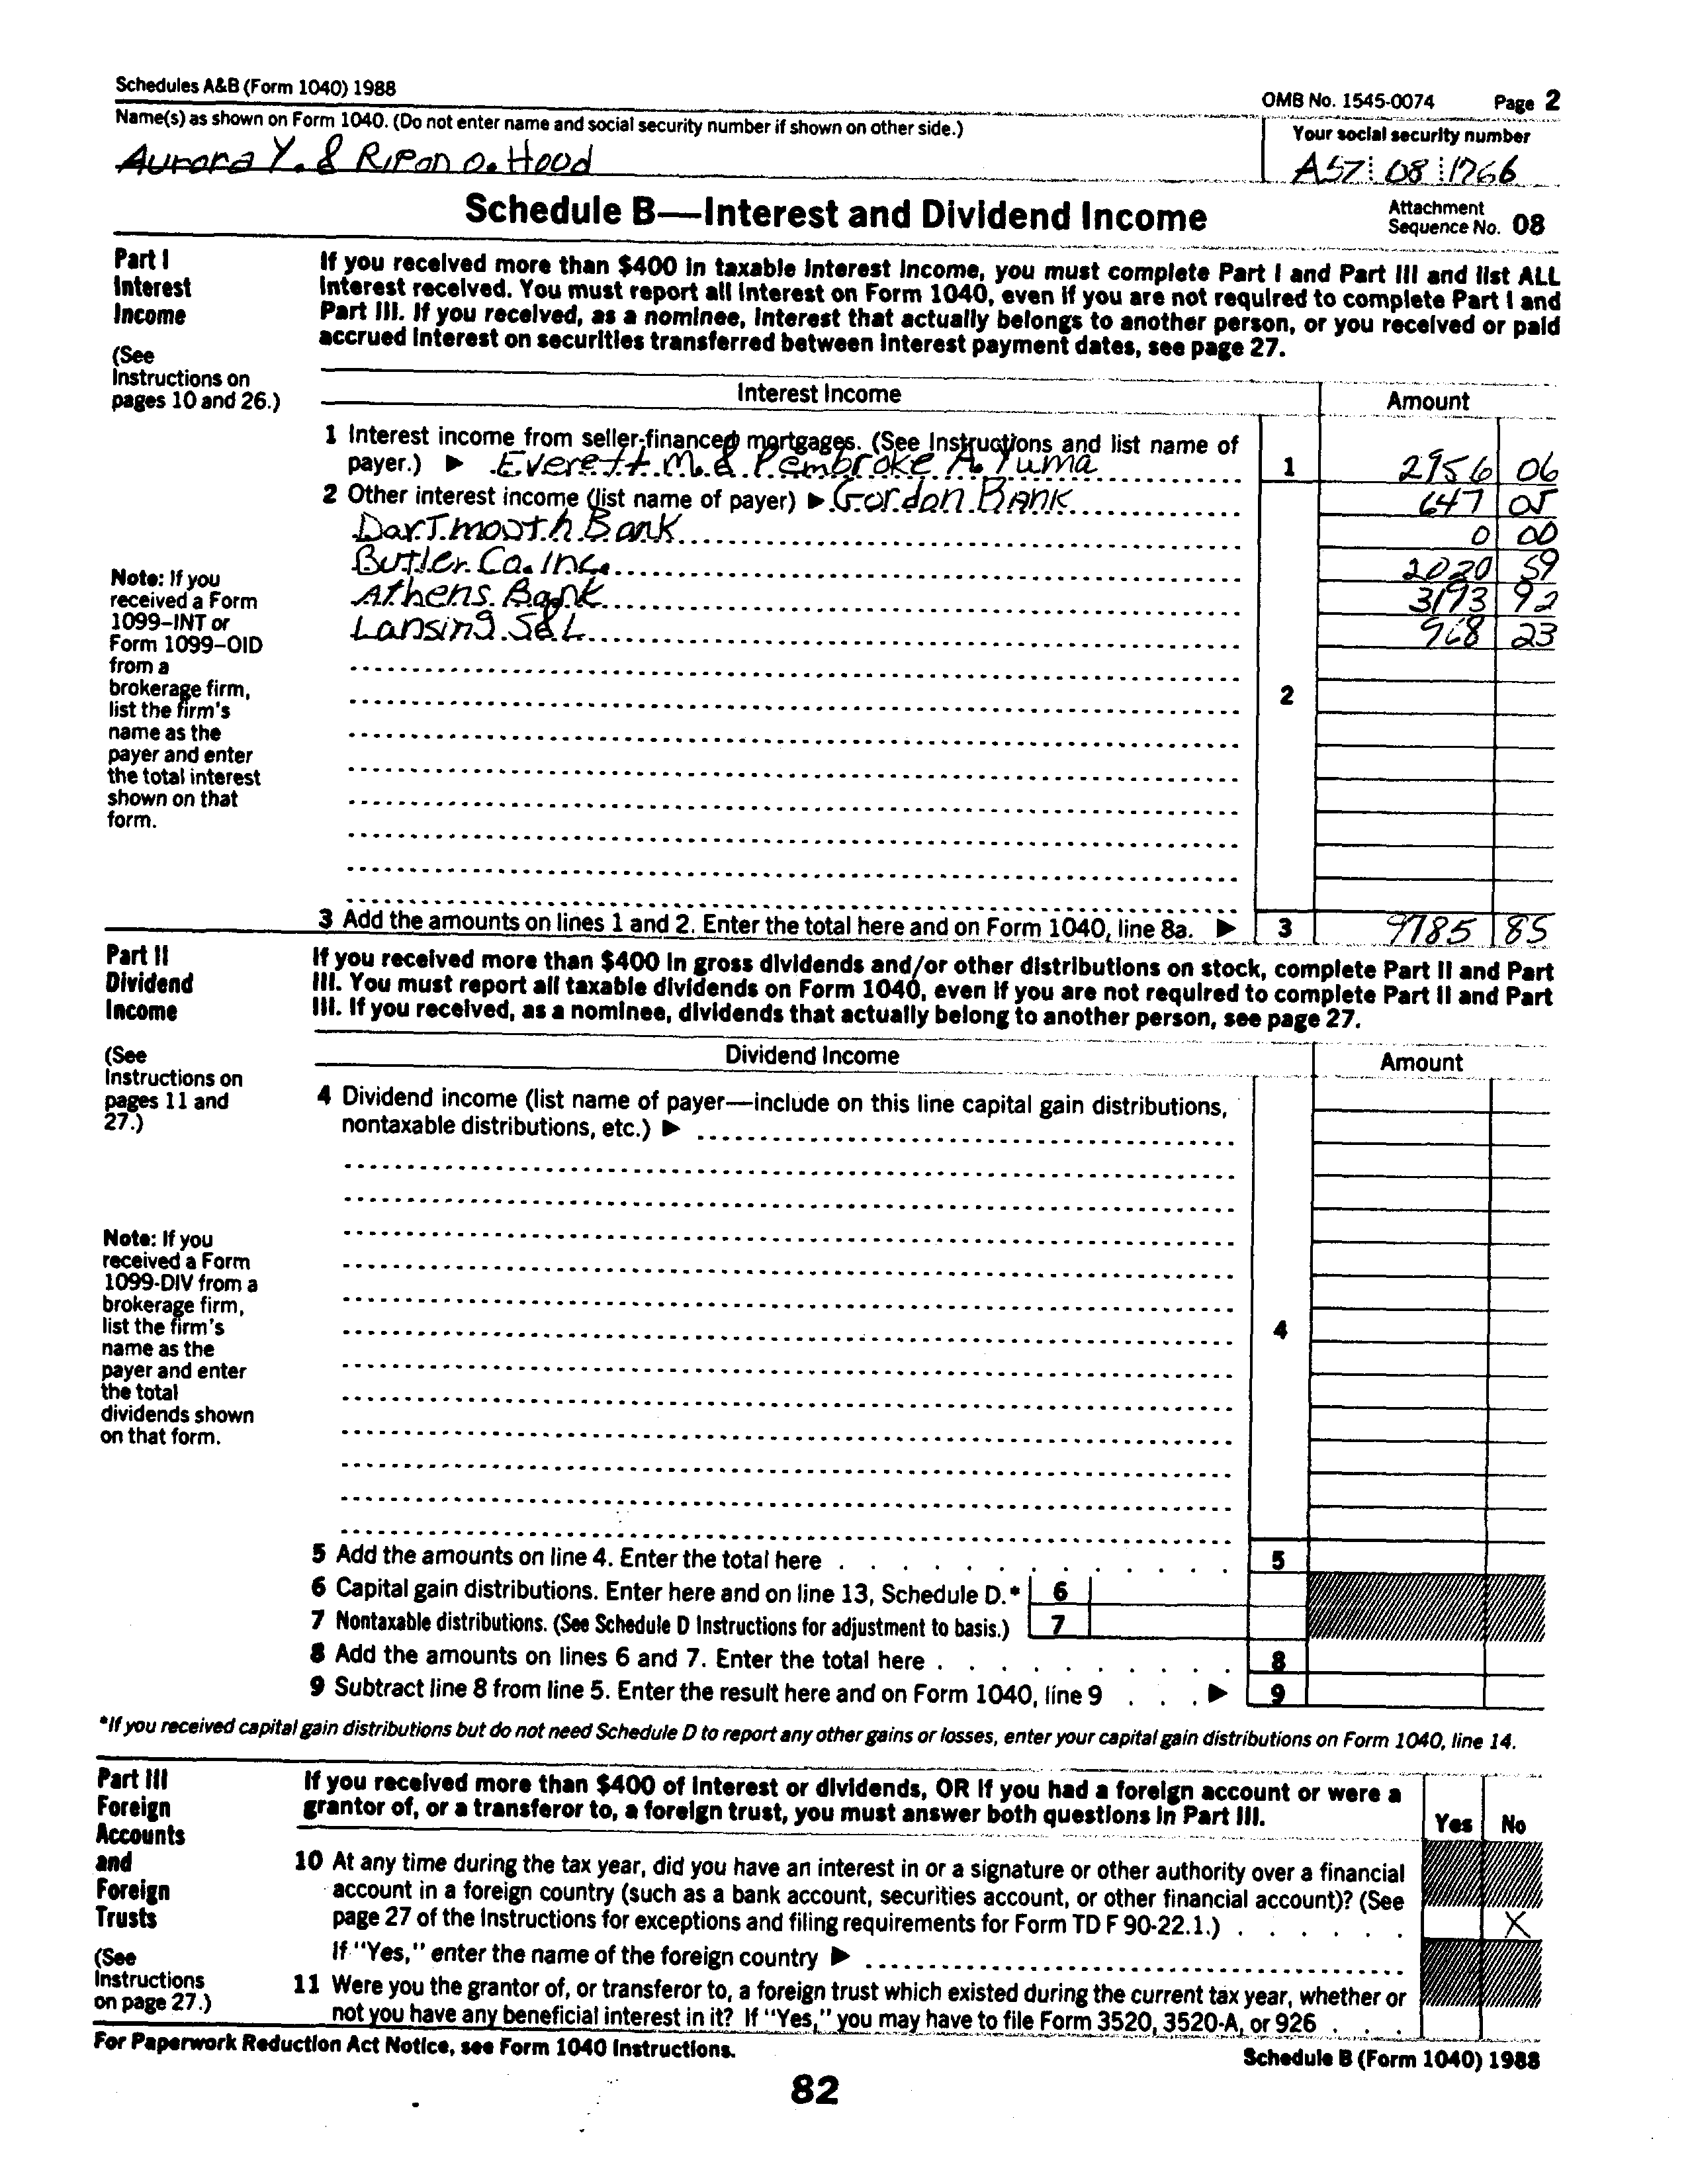 Schedules A&B (Form 1040) 1988
OMB No. 1545-0074 Page 2
Name(s) as shown on Form 1040. (Do not enter name and social security number if shown on other side.)
Your social security number
Aurora Y. & Ripon O. Hood
A57 08 1766
Schedule B—Interest and Dividend Income
Attachment
Sequence No. 08
Part I
Interest
Income
(See
Instructions on
pages 10 and 26.)
If you received more than $400 in taxable interest income, you must complete Part I and Part III and list ALL
interest received. You must report all interest on Form 1040, even if you are not required to complete Part I and
Part III. If you received, as a nominee, interest that actually belongs to another person, or you received or paid
accrued interest on securities transferred between interest payment dates, see page 27.
Interest Income Amount
1 Interest income from seller-financed mortgages. (See Instructions and list name of
payer.) ▶ Everett M. & Pembroke A. Yuma 1 2956 06
2 Other interest income (list name of payer) ▶ Gordon Bank 647 05
Dartmouth Bank 0 00
Butler Co. Inc. 2020 59
Athens Bank 3193 92
Lansing S&L 968 23
2
Note: If you
received a Form
1099–INT or
Form 1099–OID
from a
brokerage firm,
list the firm's
name as the
payer and enter
the total interest
shown on that
form.
3 Add the amounts on lines 1 and 2. Enter the total here and on Form 1040, line 8a. ▶ 3 9785 85
Part II
Dividend
Income
(See
Instructions on
pages 11 and
27.)
If you received more than $400 in gross dividends and/or other distributions on stock, complete Part II and Part
III. You must report all taxable dividends on Form 1040, even if you are not required to complete Part II and Part
III. If you received, as a nominee, dividends that actually belong to another person, see page 27.
Dividend Income Amount
4 Dividend income (list name of payer—include on this line capital gain distributions,
nontaxable distributions, etc.) ▶
4
Note: If you
received a Form
1099-DIV from a
brokerage firm,
list the firm's
name as the
payer and enter
the total
dividends shown
on that form.
5 Add the amounts on line 4. Enter the total here 5
6 Capital gain distributions. Enter here and on line 13, Schedule D.* 6
7 Nontaxable distributions. (See Schedule D Instructions for adjustment to basis.) 7
8 Add the amounts on lines 6 and 7. Enter the total here 8
9 Subtract line 8 from line 5. Enter the result here and on Form 1040, line 9 ▶ 9
*If you received capital gain distributions but do not need Schedule D to report any other gains or losses, enter your capital gain distributions on Form 1040, line 14.
Part III
Foreign
Accounts
and
Foreign
Trusts
(See
Instructions
on page 27.)
If you received more than $400 of interest or dividends, OR if you had a foreign account or were a
grantor of, or a transferor to, a foreign trust, you must answer both questions in Part III.
Yes No
10 At any time during the tax year, did you have an interest in or a signature or other authority over a financial
account in a foreign country (such as a bank account, securities account, or other financial account)? (See
page 27 of the Instructions for exceptions and filing requirements for Form TD F 90-22.1.) X
If "Yes," enter the name of the foreign country ▶
11 Were you the grantor of, or transferor to, a foreign trust which existed during the current tax year, whether or
not you have any beneficial interest in it? If "Yes," you may have to file Form 3520, 3520-A, or 926
For Paperwork Reduction Act Notice, see Form 1040 Instructions.
Schedule B (Form 1040) 1988
82